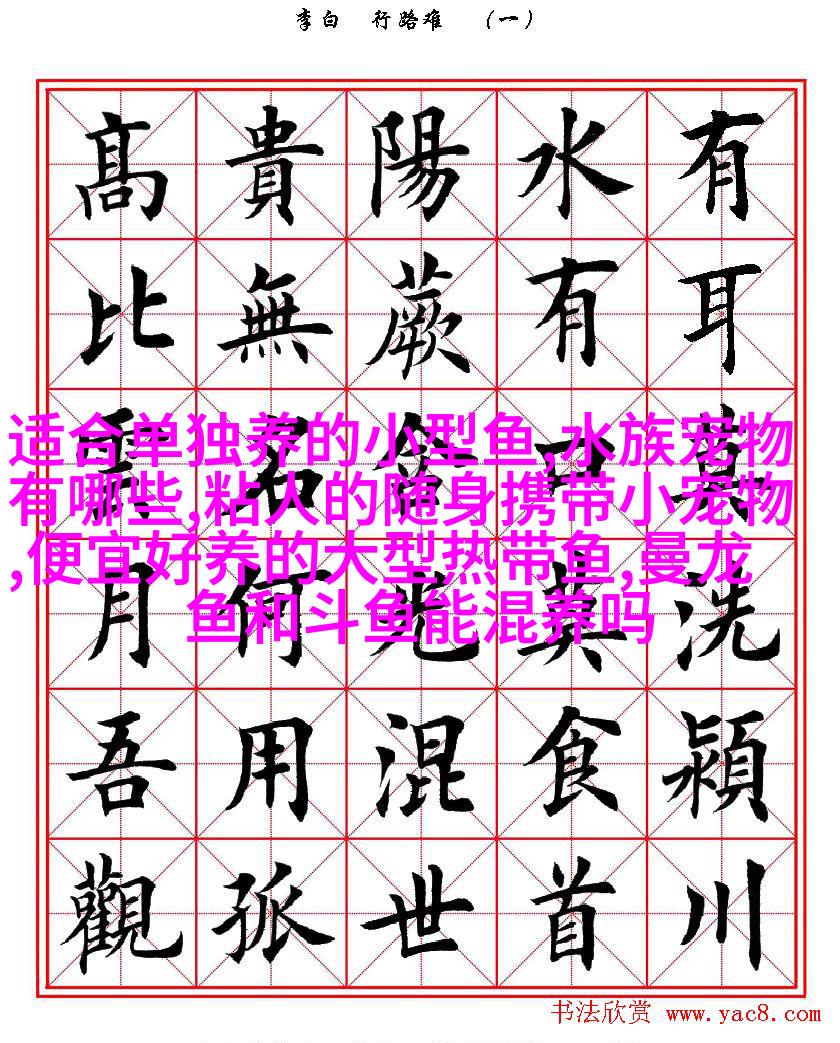 李白 行路难 （一）
有耳莫洗潁川
水有口莫食首
陽蕨含光混世
貴無名何用孤
髙比雲月吾觀
适合单独养的小型鱼,水族宠物
有哪些,粘人的随身携带小宠物
,便宜好养的大型热带鱼,曼龙
鱼和斗鱼能混养吗
书法欣赏 www.yac8.com